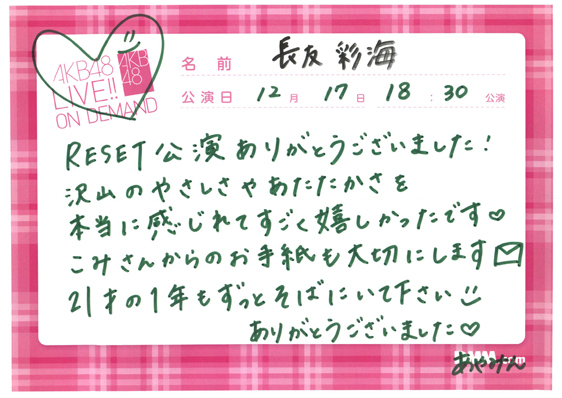 AKB48
LIVE!!
ON DEMAND
AKB
48
名前 長友彩海
公演日 12月 17日 18:30 公演
RESET公演ありがとうございました!
沢山のやさしさやあたたかさを
本当に感じれてすごく嬉しかったです♡
こみさんからのお手紙も大切にします
21才の1年もずっとそばにいて下さい
ありがとうございました♡
あやみん